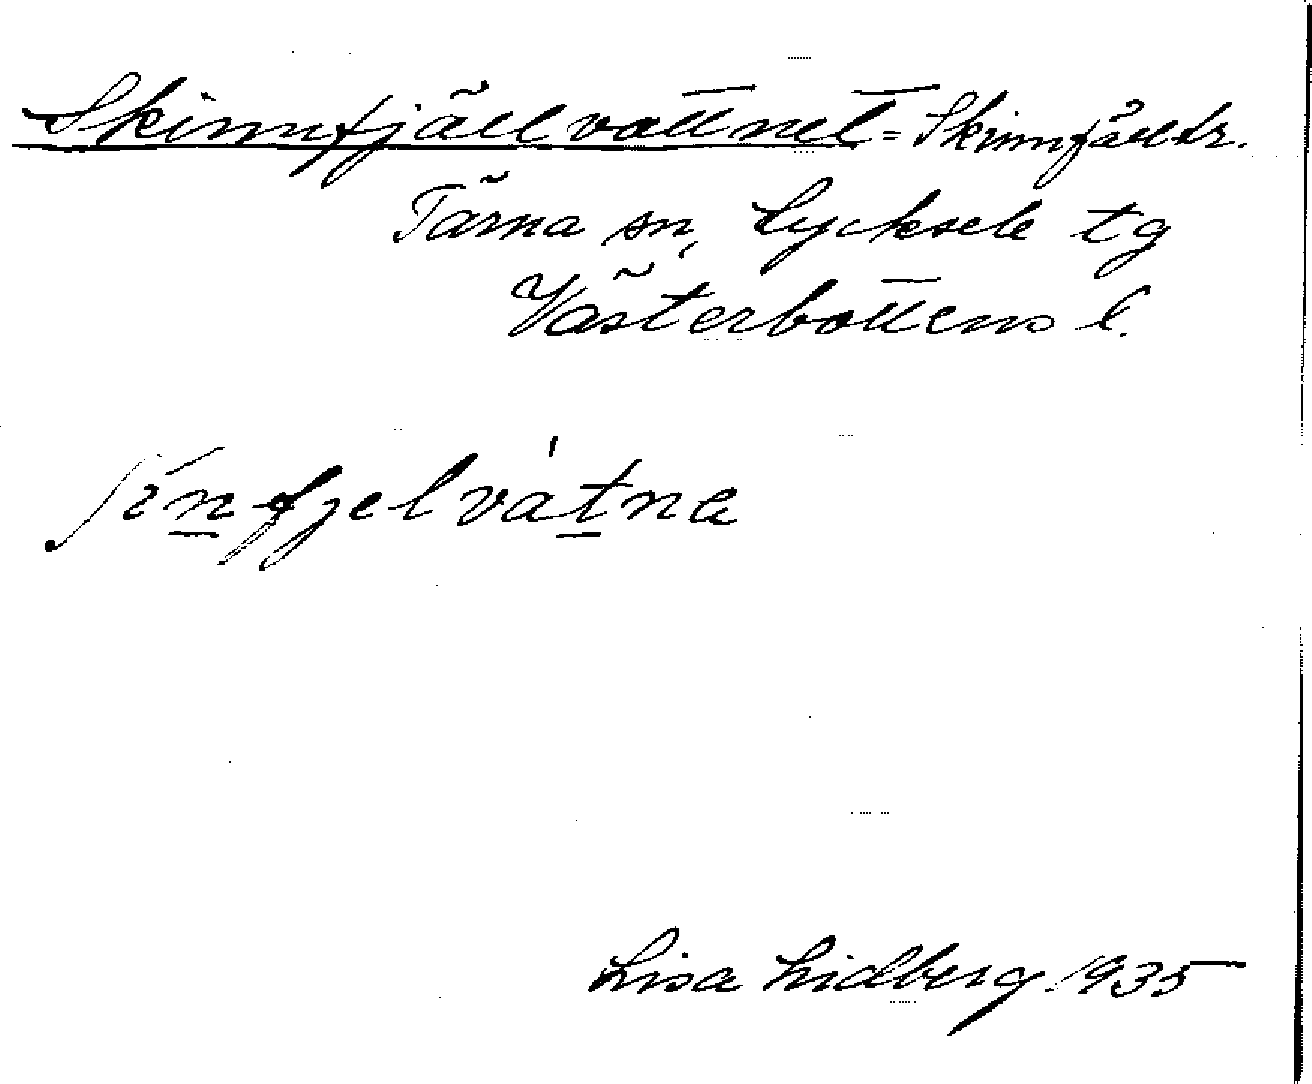 Skinnfjällvattnet = Skinnfjälltr.
Tärna sn, Lycksele tg
Västerbottens l.
ʃi´n̲fjelvàt̲na
Lisa Lidberg 1935